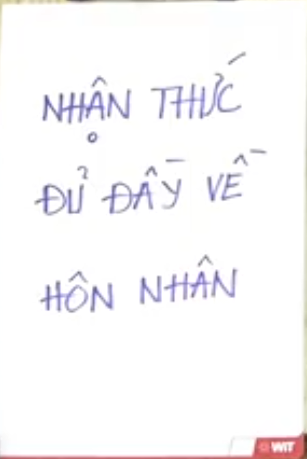 NHẬN THỨC
ĐỦ ĐẦY VỀ
HÔN NHÂN
WIT